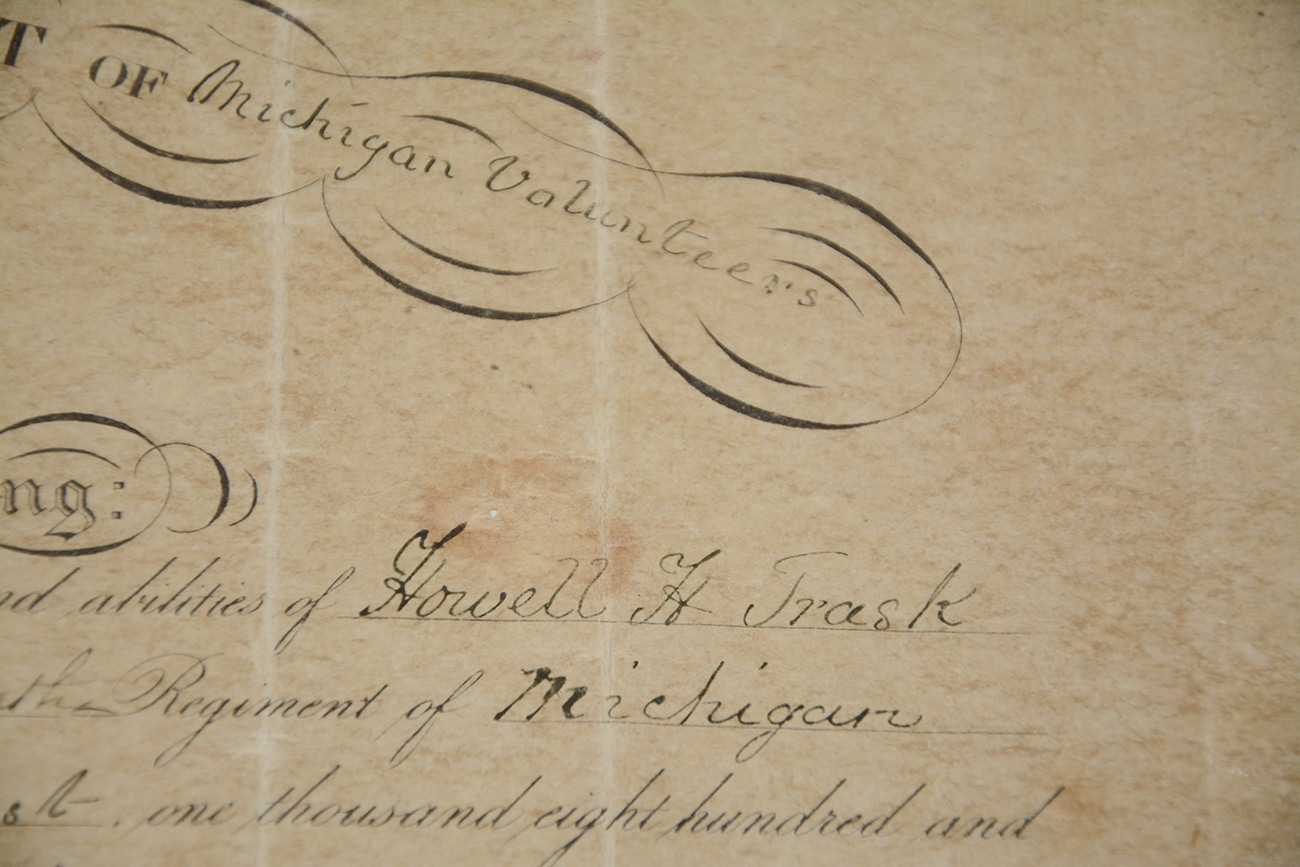 T OF Michigan Volunteers
ng:
nd abilities of Howell H Trask
th Regiment of Michigan
st, one thousand eight hundred and